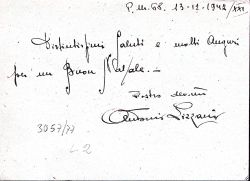 P.M. 68. 13-12-1942/XXI
Distintissimi Saluti e molti Auguri
per un Buon Natale. -
Vostro
Antonio Lizzani
3057/77
L2